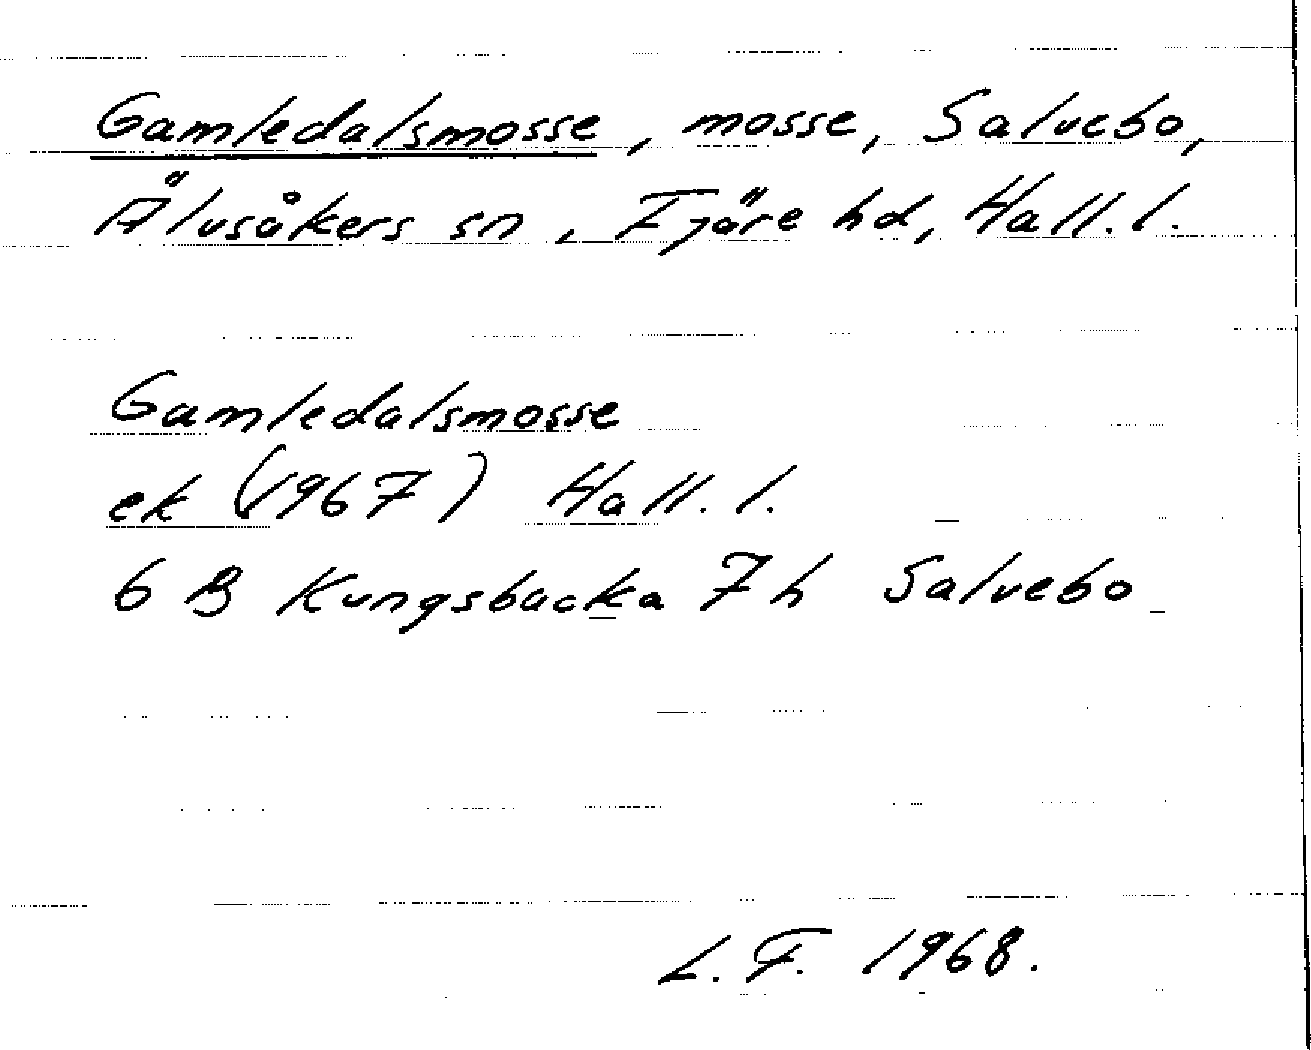 Gamledalsmosse, mosse, Salvebo,
Älvsåkers sn, Fjäre hd, Hall. l.
Gamledalsmosse
ek (1967) Hall. l.
6 B Kungsbacka 7 h Salvebo
L. F. 1968.